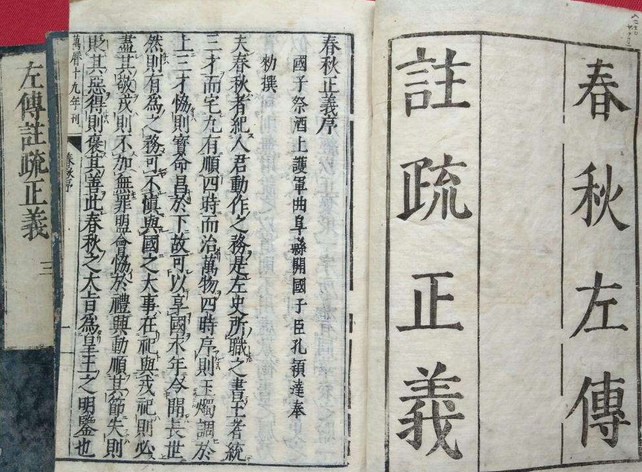 春秋左傳
註疏正義
春秋正義序
國子祭酒上護軍曲阜縣開國子臣孔穎達奉
勑撰
夫春秋者紀人君動作之務是左史所職之書王者統
三才而宅九有順四時而治萬物四時序則玉燭調於
上三才協則寶命昌於下故可以享國永年令聞長世
然則有為之務可不慎與國之大事在祀與戎祀則必
盡其敬戎則不加無罪盟會協於禮興動順其節失則
貶其惡得則褒其善此春秋之大旨為皇王之明鑒也
萬曆十九年刊
春秋序
左傳註疏正義
三